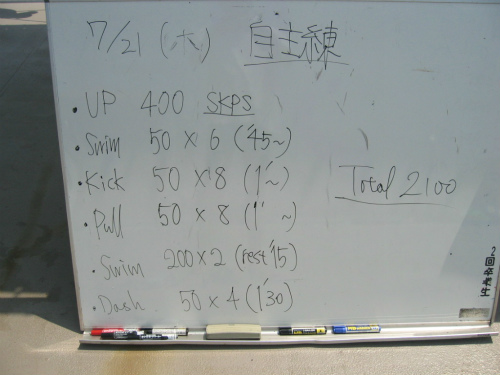 7/21 (木) 自主練
・UP 400 SKPS
・Swim 50×6 (45~)
・Kick 50×8 (1'~)
Total 2100
・Pull 50×8 (1' ~)
・Swim 200×2 (rest 15)
・Dash 50×4 (1'30)